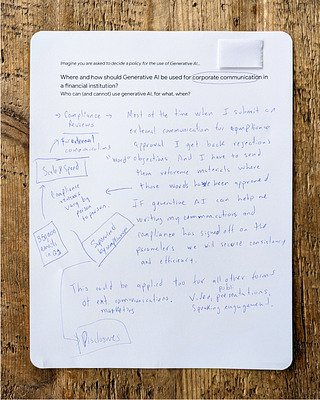 Imagine you are asked to decide a policy for the use of Generative AI...
Where and how should Generative AI be used for corporate communication in
a financial institution?
Who can (and cannot) use generative AI, for what, when?
→ Compliance → Reviews
for external communications
Scale & Speed
Compliance reviews vary by person to person.
emails in
Supervised by compliance
Most of the time when I submit an
external communication for compliance
approval I get back rejections
"word" objections. And I have to send
them reference materials where
those words have been approved
If generative AI can help me
writing my communications and
compliance has signed off on the
parameters we will secure consistency
and efficiency.
This could be applied too for all other forms
of ext communications,
marketing
video, presentations,
speaking engagements.
Disclosures